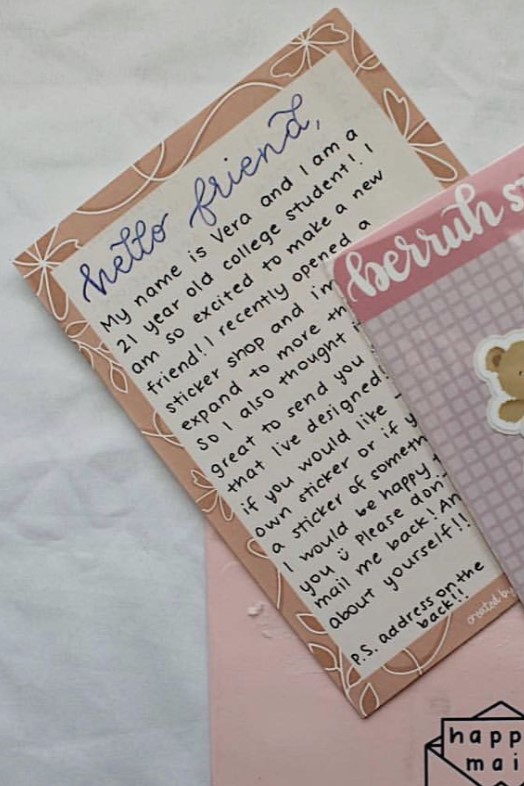 hello friend,
My name is Vera and I am a
21 year old college student!. I
am so excited to make a new
friend! I recently opened a
sticker shop and I'm
expand to more
So I also thought
great to send you
that I've designed!
if you would like
own sticker or if
a sticker of
I would be happy
you ü Please don't
mail me back! An
about yourself!!
P.S. address on the
back!!
created by
berruh
happ
mai